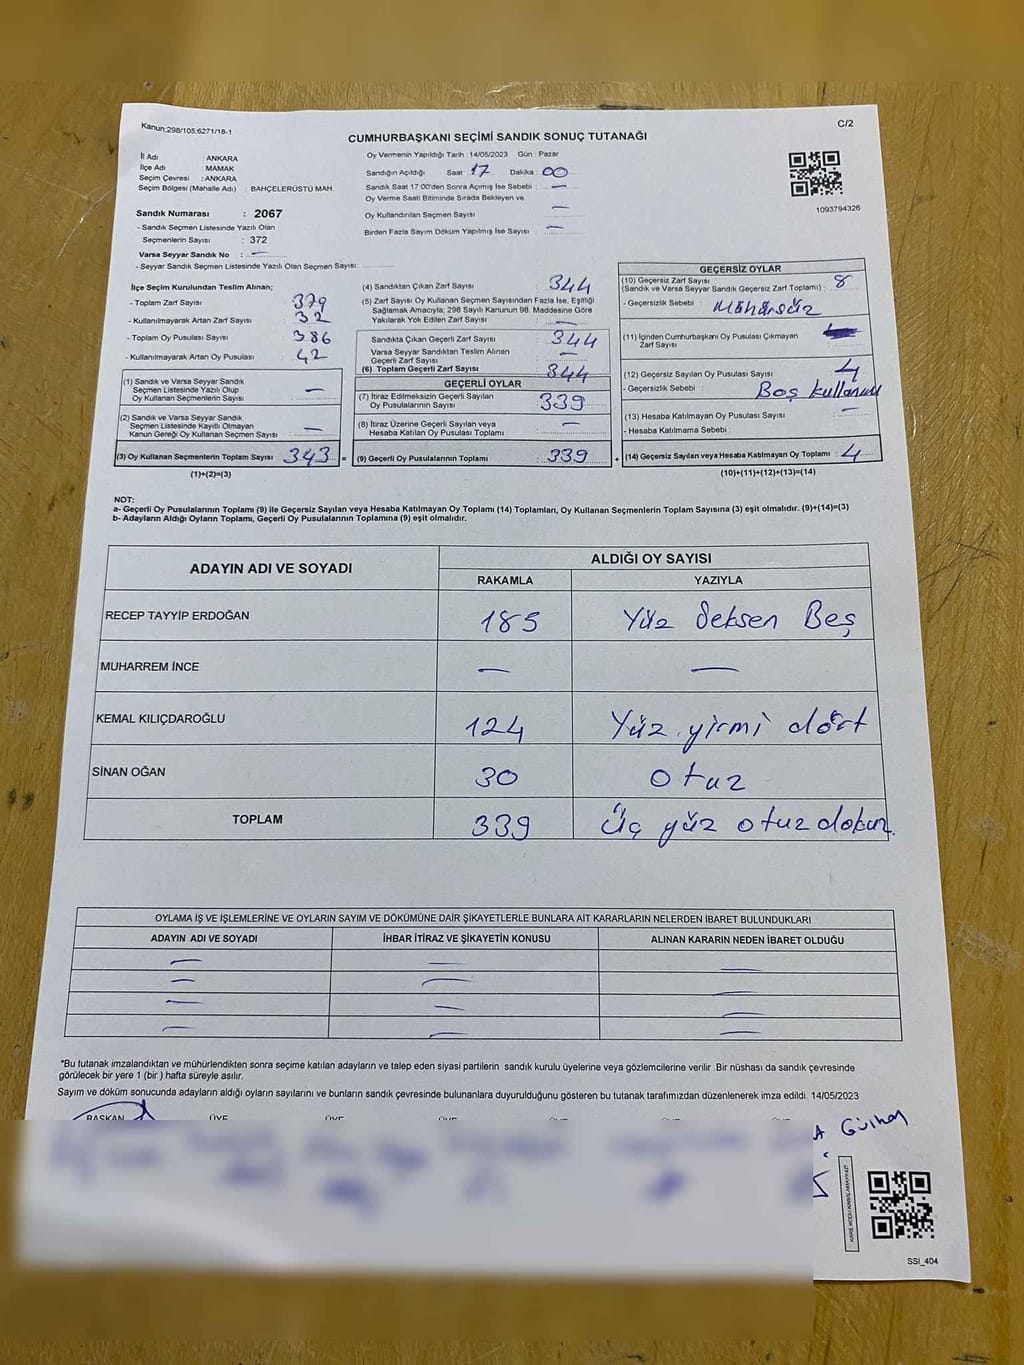 Kanun;298/105;6271/18-1
C/2
CUMHURBAŞKANI SEÇİMİ SANDIK SONUÇ TUTANAĞI
İl Adı : ANKARA
İlçe Adı : MAMAK
Seçim Çevresi : ANKARA
Seçim Bölgesi (Mahalle Adı) : BAHÇELERÜSTÜ MAH.
Sandık Numarası : 2067
- Sandık Seçmen Listesinde Yazılı Olan
Seçmenlerin Sayısı : 372
Varsa Seyyar Sandık No : —
- Seyyar Sandık Seçmen Listesinde Yazılı Olan Seçmen Sayısı:
Oy Vermenin Yapıldığı Tarih : 14/05/2023 Gün : Pazar
Sandığın Açıldığı Saat : 17 Dakika : 00
Sandık Saat 17:00'den Sonra Açımış İse Sebebi : —
Oy Verme Saati Bitiminde Sırada Bekleyen ve
Oy Kullandırılan Seçmen Sayısı —
Birden Fazla Sayım Döküm Yapılmış İse Sayısı : —
1093794326
İlçe Seçim Kurulundan Teslim Alınan;
- Toplam Zarf Sayısı 379
- Kullanılmayarak Artan Zarf Sayısı : 32
- Toplam Oy Pusulası Sayısı : 386
- Kullanılmayarak Artan Oy Pusulası : 42
(1) Sandık ve Varsa Seyyar Sandık
Seçmen Listesinde Yazılı Olup
Oy Kullanan Seçmenlerin Sayısı : —
(2) Sandık ve Varsa Seyyar Sandık
Seçmen Listesinde Kayıtlı Olmayan
Kanun Gereği Oy Kullanan Seçmen Sayısı : —
(3) Oy Kullanan Seçmenlerin Toplam Sayısı : 343 =
(1)+(2)=(3)
(4) Sandıktan Çıkan Zarf Sayısı : 344
(5) Zarf Sayısı Oy Kullanan Seçmen Sayısından Fazla İse, Eşitliği
Sağlamak Amacıyla; 298 Sayılı Kanunun 98. Maddesine Göre
Yakılarak Yok Edilen Zarf Sayısı : —
Sandıkta Çıkan Geçerli Zarf Sayısı : 344
Varsa Seyyar Sandıktan Teslim Alınan
Geçerli Zarf Sayısı : —
(6) Toplam Geçerli Zarf Sayısı : 344
GEÇERLİ OYLAR
(7) İtiraz Edilmeksizin Geçerli Sayılan
Oy Pusulalarının Sayısı : 339
(8) İtiraz Üzerine Geçerli Sayılan veya
Hesaba Katılan Oy Pusulası Toplamı : —
(9) Geçerli Oy Pusulalarının Toplamı : 339 +
GEÇERSİZ OYLAR
(10) Geçersiz Zarf Sayısı : 8
(Sandık ve Varsa Seyyar Sandık Geçersiz Zarf Toplamı)
- Geçersizlik Sebebi : Mühürsüz
(11) İçinden Cumhurbaşkanı Oy Pusulası Çıkmayan
Zarf Sayısı
(12) Geçersiz Sayılan Oy Pusulası Sayısı : 4
- Geçersizlik Sebebi : Boş kullanımı
(13) Hesaba Katılmayan Oy Pusulası Sayısı : —
- Hesaba Katılmama Sebebi :
(14) Geçersiz Sayılan veya Hesaba Katılmayan Oy Toplamı : 4
(10)+(11)+(12)+(13)=(14)
NOT:
a- Geçerli Oy Pusulalarının Toplamı (9) ile Geçersiz Sayılan veya Hesaba Katılmayan Oy Toplamı (14) Toplamları, Oy Kullanan Seçmenlerin Toplam Sayısına (3) eşit olmalıdır. (9)+(14)=(3)
b- Adayların Aldığı Oyların Toplamı, Geçerli Oy Pusulalarının Toplamına (9) eşit olmalıdır.
ADAYIN ADI VE SOYADI ALDIĞI OY SAYISI
RAKAMLA YAZIYLA
RECEP TAYYİP ERDOĞAN 185 Yüz Seksen Beş
MUHARREM İNCE — —
KEMAL KILIÇDAROĞLU 124 Yüz yirmi dört
SİNAN OĞAN 30 otuz
TOPLAM 339 Üç yüz otuz dokuz
OYLAMA İŞ VE İŞLEMLERİNE VE OYLARIN SAYIM VE DÖKÜMÜNE DAİR ŞİKAYETLERLE BUNLARA AİT KARARLARIN NELERDEN İBARET BULUNDUKLARI
ADAYIN ADI VE SOYADI İHBAR İTİRAZ VE ŞİKAYETİN KONUSU ALINAN KARARIN NEDEN İBARET OLDUĞU
— — —
— — —
— — —
— — —
*Bu tutanak imzalandıktan ve mühürlendikten sonra seçime katılan adayların ve talep eden siyasi partilerin sandık kurulu üyelerine veya gözlemcilerine verilir .Bir nüshası da sandık çevresinde
görülecek bir yere 1 (bir ) hafta süreyle asılır.
Sayım ve döküm sonucunda adayların aldığı oyların sayılarını ve bunların sandık çevresinde bulunanlara duyurulduğunu gösteren bu tutanak tarafımızdan düzenlenerek imza edildi. 14/05/2023
BAŞKAN ÜYE ÜYE
SSI_404